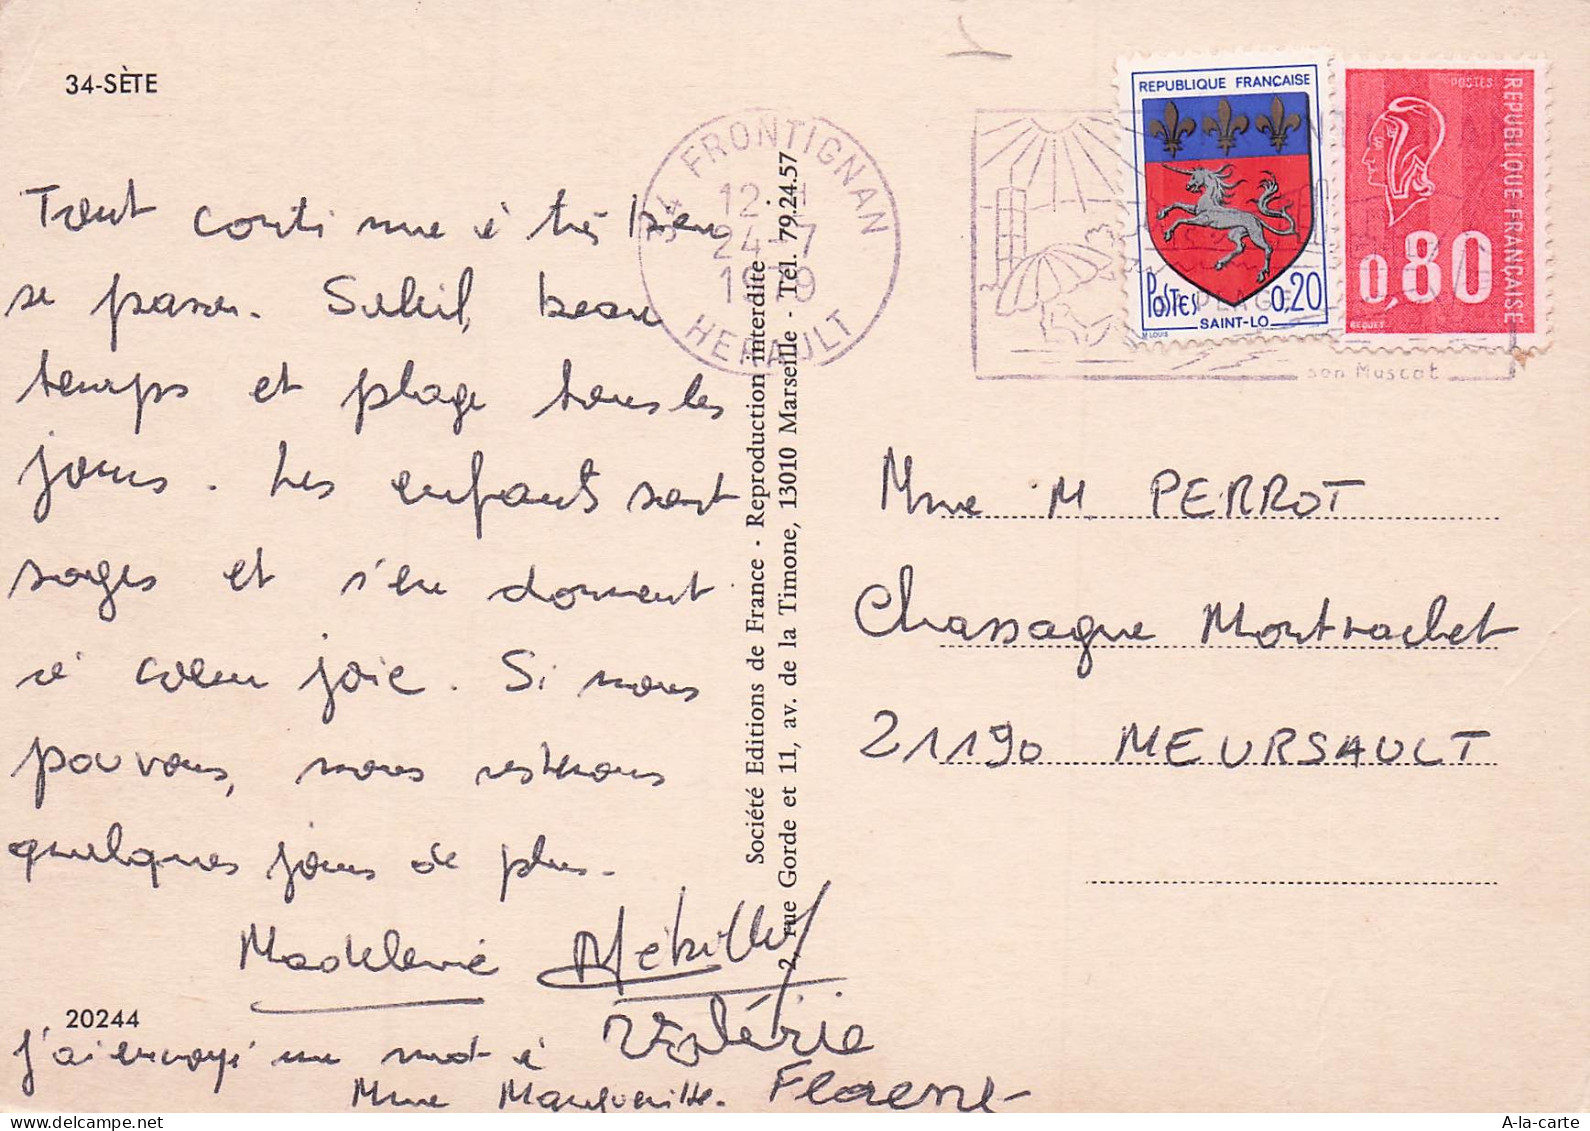 34-SÈTE
Tout continue à très bien
se passer. Soleil, beau
temps et plage tous les
jours. Les enfants sont
sages et s'en donnent
à cœur joie. Si nous
pouvons, nous resterons
quelques jours de plus.
Madeleine
Valérie
Florent
20244
j'ai envoyé un mot à
Mme Marguerite.
Société Editions de France - Reproduction interdite
2, rue Gorde et 11, av. de la Timone, 13010 Marseille - Tél. 79.24.57
34 FRONTIGNAN
12 H
24-7
1979
HERAULT
REPUBLIQUE FRANÇAISE
POSTES 0,20
SAINT-LO
M LOUIS
POSTES
REPUBLIQUE FRANÇAISE
0,80
BEQUET
PLAGE
son Muscat
Mme M. PERROT
Chassagne Montrachet
21190 MEURSAULT
A-la-carte